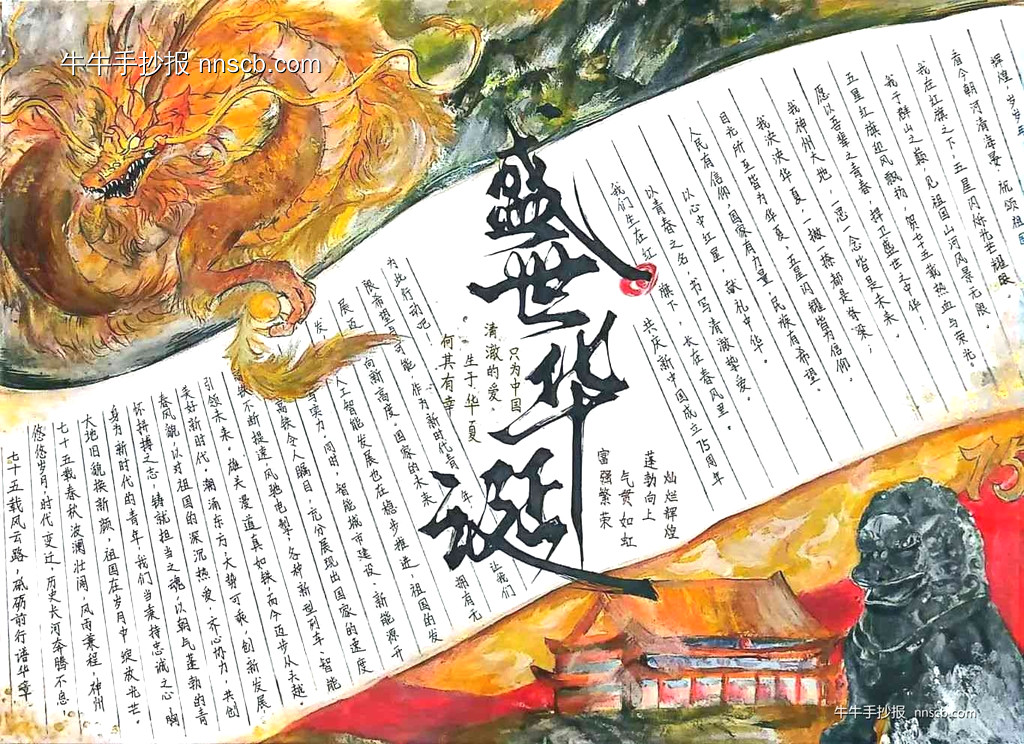 牛牛手抄报 nnscb.com
盛世华诞
辉煌，岁岁
看今朝河清海晏，颂祖国
我在红旗之下，五星闪烁光芒耀眼
我于群山之巅，见祖国山河风景无限，
五星红旗迎风飘扬，贺七十五载热血与荣光。
愿以吾辈之青春，捍卫盛世之中华！
我神州大地，一思一念皆是未来，
我泱泱华夏，一撇一捺都是脊梁；
目光所至皆为华夏，五星闪耀皆为信仰。
人民有信仰，国家有力量，民族有希望。
以心中红星，献礼中华。
以青春之名，书写清澈挚爱。
共庆新中国成立75周年
我们生在红旗下，长在春风里。
灿烂辉煌
蓬勃向上
气贯如虹
富强繁荣
只为中国
清澈的爱，
生于华夏
何其有幸
七十五载风云路，砥砺前行谱华章，
悠悠岁月，时代变迁，历史长河奔腾不息，
七十五载春秋，波澜壮阔，风雨兼程，神州
大地旧貌换新颜，祖国在岁月中，绽放光芒。
身为新时代的青年，我们当秉持忠诚之心，胸
怀拼搏之志，铸就担当之魂，以朝气蓬勃的青
春风貌，以对祖国的深沉热爱，齐心协力，共创
美好新时代，潮涌东方，大势可乘，创新发展，
引领未来，雄关漫道真如铁，而今迈步从头越。
不断提速，风驰电掣，各种新型列车，智能
高铁令人瞩目，充分展现出国家的速度
与实力，同时，智能城市建设，新能源开
发，人工智能发展也在稳步推进，祖国的发
展迈向新高度，国家的未来拥有无
限希望与可能，作为新时代青年，让我们
为此行动吧！
75
牛牛手抄报 nnscb.com